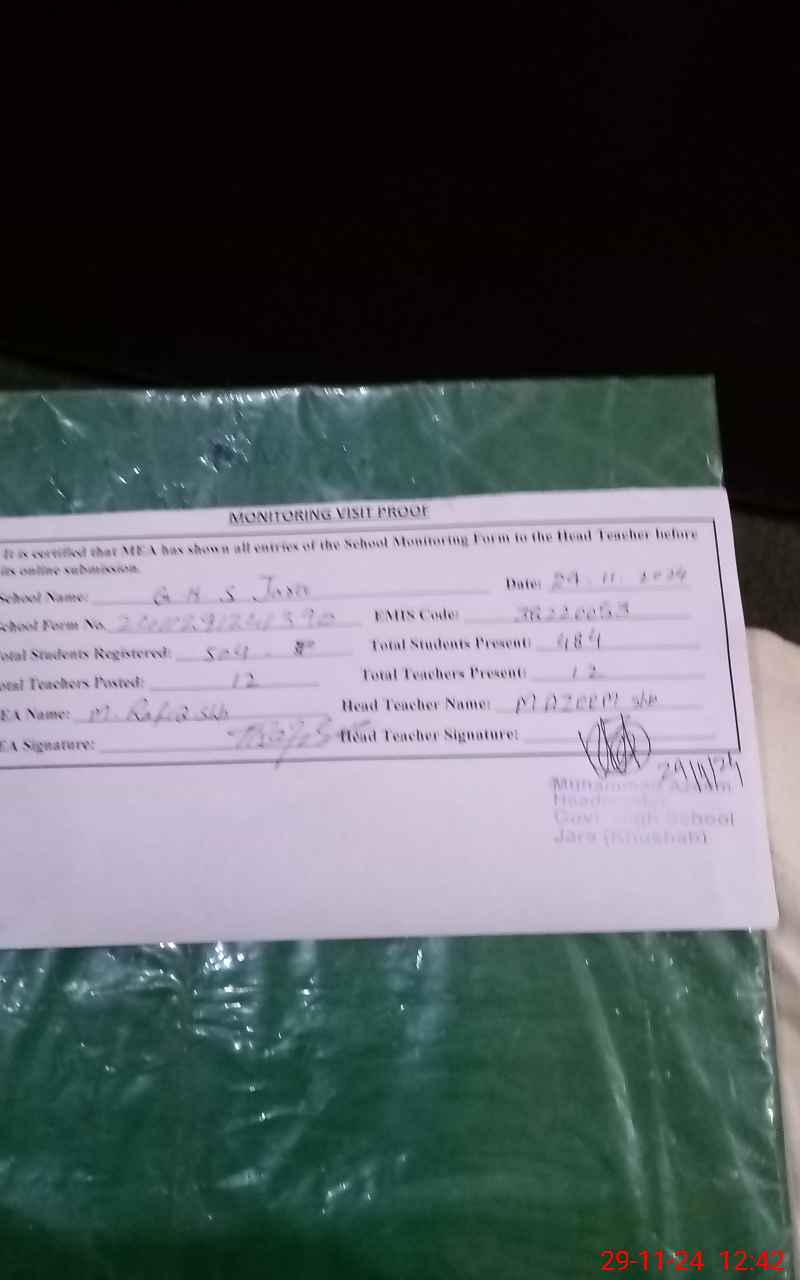 MONITORING VISIT PROOF
It is certified that MEA has shown all entries of the School Monitoring Form to the Head Teacher before
its online submission.
School Name: G H S Jara Date: 29.11.2024
School Form No. EMIS Code: 38220053
Total Students Registered: 504 Total Students Present: 484
Total Teachers Posted: 12 Total Teachers Present: 12
EA Name: M. Head Teacher Name: M
EA Signature: Head Teacher Signature:
29/11/24
Muhammad
Govt. High School
Jara (Khushab)
29-11-24 12:42